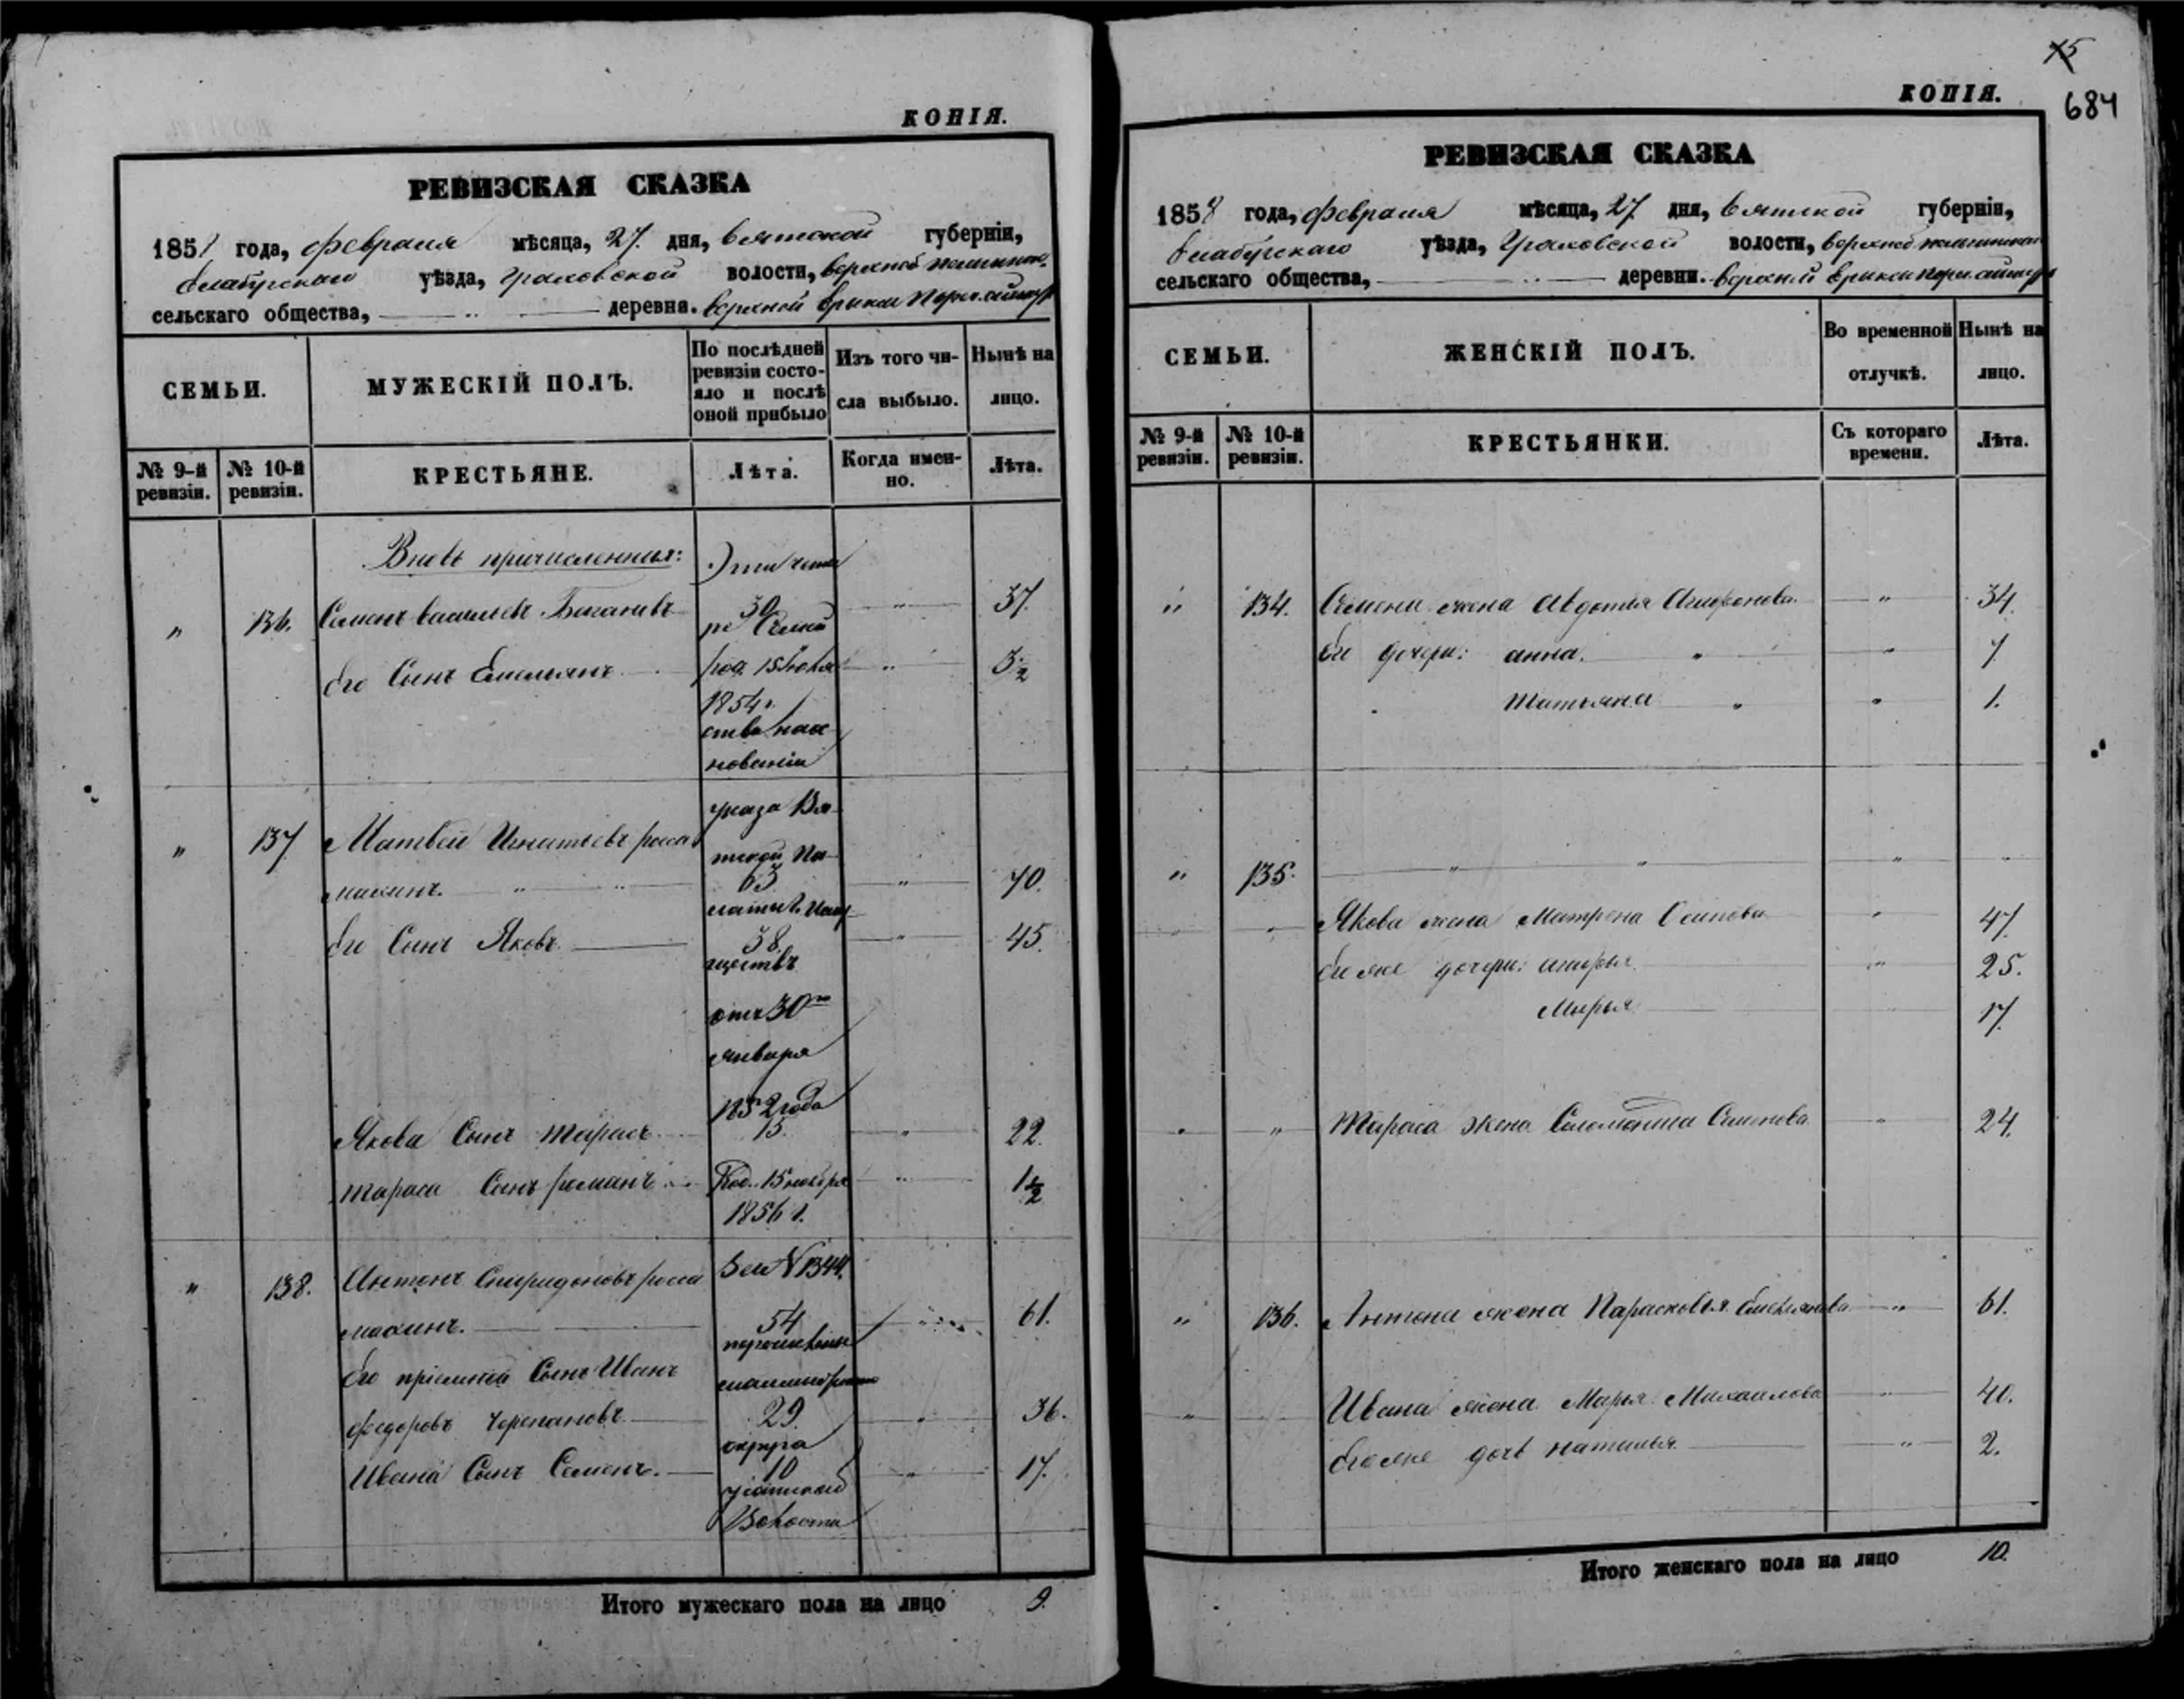 КОПІЯ.
РЕВИЗСКАЯ СКАЗКА
185 года, февраля мѣсяца, 27. дня, Вятской губерніи,
Елабугскаго уѣзда, Граховской волости, верхней
сельскаго общества, деревни. верхней
СЕМЬИ.
МУЖЕСКІЙ ПОЛЪ.
По послѣдней ревизіи состояло и послѣ оной прибыло
Изъ того числа выбыло.
Нынѣ на лицо.
№ 9-й ревизіи.
№ 10-й ревизіи.
КРЕСТЬЯНЕ.
Лѣта.
Когда именно.
Лѣта.
Вновь причисленныя:
" 136. Семенъ Васильевъ 30 " 37.
Его Сынъ Емельянъ род. 15 Іюля " 3½
1854 г.
ства на ос
нованіи
указа Вят
ской Па
" 137 Матвей Игнатьевъ Росса
махинъ. " " 63 " 70.
латы Иму
Его Сынъ Яковъ 38. " 45.
ществъ
отъ 30го
января
1852 года
Якова Сынъ Тарасъ 15. " 22.
Тараса Сынъ Романъ Род. 15 ноября " 1½
1856 г.
" 138. Антонъ Спиридоновъ Росса За № 1344.
махинъ. 54 " 61.
Его пріемный Сынъ Иванъ
Федоровъ Черепановъ 29. " 36.
округа
Ивана Сынъ Семенъ. 10 " 17.
Волости
Итого мужескаго пола на лицо 9.
15
684
КОПІЯ.
РЕВИЗСКАЯ СКАЗКА
1858 года, февраля мѣсяца, 27 дня, Вятской губерніи,
Елабугскаго уѣзда, Граховской волости, верхней
сельскаго общества, деревни. верхней
СЕМЬИ.
ЖЕНСКІЙ ПОЛЪ.
Во временной отлучкѣ.
Нынѣ на лицо.
№ 9-й ревизіи.
№ 10-й ревизіи.
КРЕСТЬЯНКИ.
Съ котораго времени.
Лѣта.
" 134. Семена жена Авдотья Агафонова " 34.
Его дочери: Анна. " " 7
Татьяна " " 1.
" 135. " " " "
Якова жена Матрена Осипова " 47
Его же дочери: " 25.
Марья " 17.
" " Тараса жена Соломонида Семенова " 24.
" 136. Антона жена Парасковья Емельянова " 61.
" Ивана жена Марья Михайлова " 40.
Его же дочь Наталья " 2.
Итого женскаго пола на лицо 10.